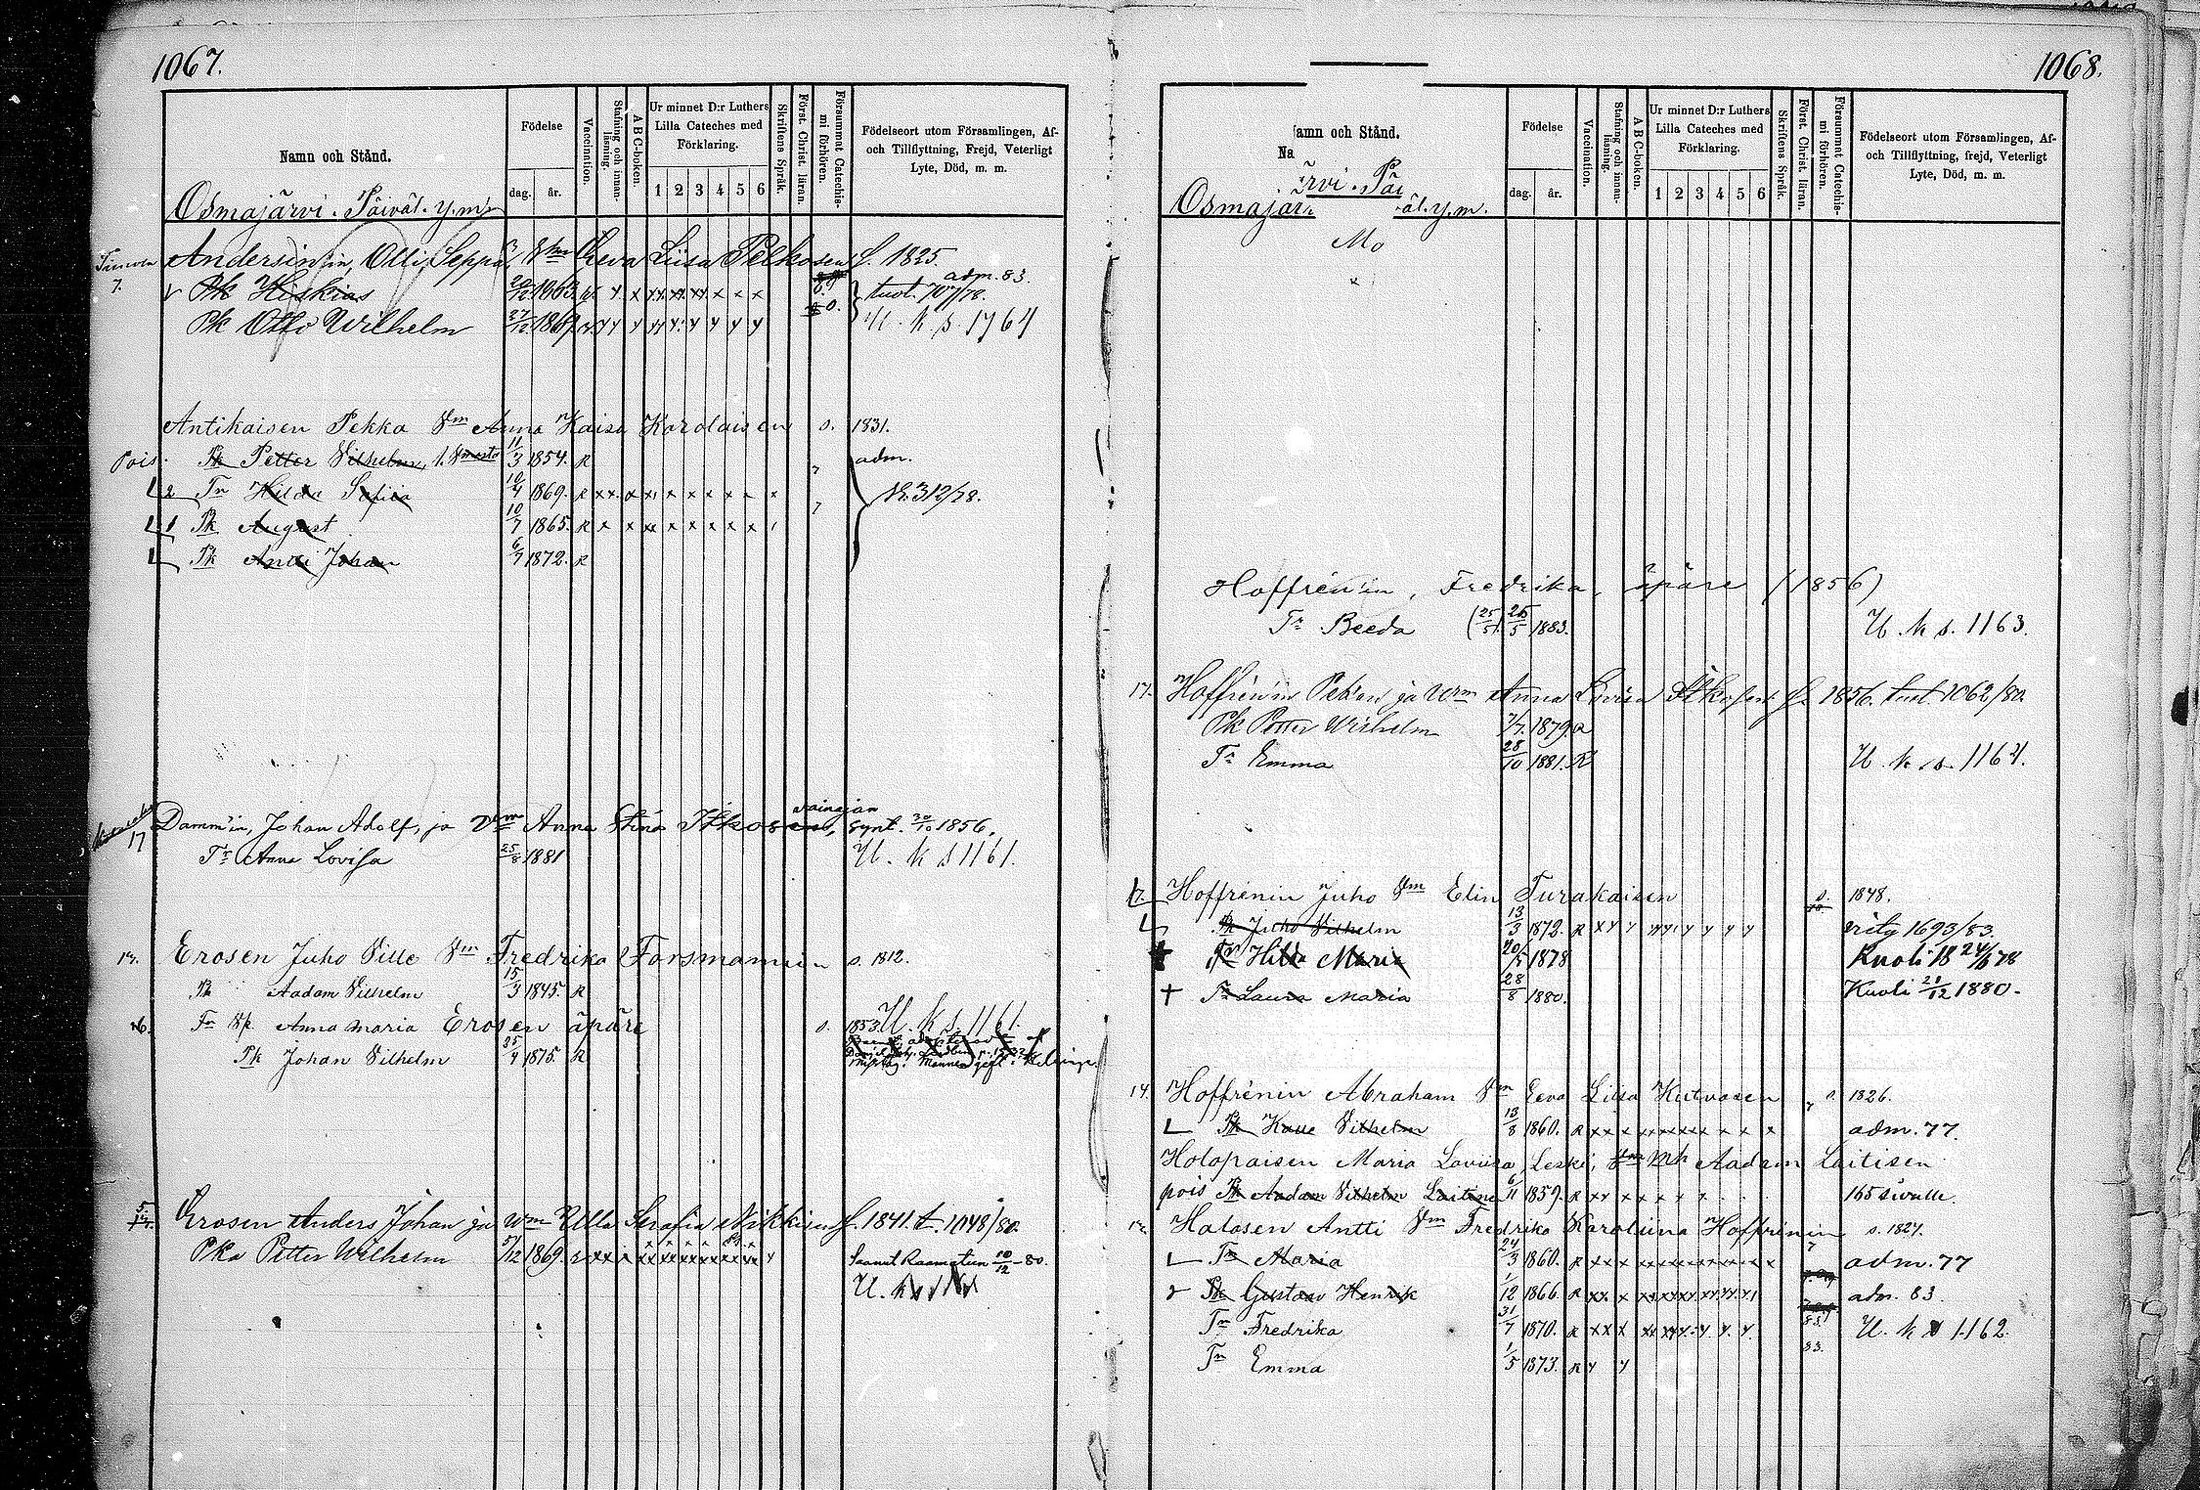 1067.
Namn och Stånd.
Födelse
dag.
år.
Vaccination.
Stafning och innan-läsning.
A B C-boken.
Ur minnet D:r Luthers Lilla Cateches med Förklaring.
1 2 3 4 5 6
Skriftens Språk.
Först. Christ. läran.
Försummat Catechis-mi förhören.
Födelseort utom Församlingen, Af- och Tillflyttning, Frejd, Veterligt Lyte, Död, m. m.
Osmajärvi. Päiväl. y.m.
Andersin'in, Olli, Seppä, Vm Eeva Liisa Pelkosen s. 1825.
7. Pk Hiskias 1863 adm. 83.
Pk Otto Wilhelm 27/12 1869 U. k. s. 1764
Antikaisen Pekka Vm Anna Kaisa Karolaisen s. 1831.
Pois. Pk Petter Vilhelm 11/3 1854. R adm.
2 Tr Hilda Sofiia 10/4 1869. R
1 Pk August 10/7 1865. R
Pk Antti Johan 6/7 1872. R
N. 312/78.
17 Damm'in, Johan Adolf, ja Vm Anna Stina Itkosen, vainajan synt. 30/10 1856.
Tr Anna Lovisa 25/8 1881 U. k. s. 1161.
14. Erosen Juho Ville Vm Fredrika Forsmannin s. 1812.
Pk Aadam Vilhelm 15/3 1845. R
Tr Anna Maria Erosen äpäre s. 1853. U. k. s. 1161.
Pk Johan Vilhelm 25/4 1875. R
Erosen Anders Johan ja Wm Ulla Serafia Nikkisen s. 1841. t. 1048/80.
Pka Petter Wilhelm 5/12 1869. Saanut Raamatun 10/12-80.
1068.
Namn och Stånd.
Födelse
dag.
år.
Vaccination.
Stafning och innan-läsning.
A B C-boken.
Ur minnet D:r Luthers Lilla Cateches med Förklaring.
1 2 3 4 5 6
Skriftens Språk.
Först. Christ. läran.
Försummat Catechis-mi förhören.
Födelseort utom Församlingen, Af- och Tillflyttning, frejd, Veterligt Lyte, Död, m. m.
Osmajär äl. y.m.
Mo
Hoffrén'in, Fredrika, äpäre (1856)
Tr Beeda (25/5) 25/5 1883. U. k. s. 1163.
17. Hoffrén'in Pekan ja Vrm Anna Lovisa Itkosen s. 1856. tust. 1062/80.
Pk Petter Wilhelm 7/7. 1879. R
Tr Emma 28/10 1881. R U. k. s. 1164.
7. Hoffrénin Juho Vm Elin Turakaisen s. 1848.
Pk Juho Vilhelm 13/3 1872. R 1693/83.
Tr Hilda Maria 20/5 1878 Kuoli 18 24/6 78
Tr Laura Maria 28/8 1880. Kuoli 21/12 1880.
14. Hoffrénin Abraham Vm Eeva Liisa Kutvosen s. 1826.
Pk Kalle Vilhelm 13/8 1860. R adm. 77.
Holopaisen Maria Loviisa, Leski, Mh Aadam Laitisen
pois Pk Aadam Vilhelm Laitinen 6/11 1859. R 165 sivulle.
Halosen Antti Vm Fredrika Karoliina Hoffrénin s. 1827.
Tr Maria 24/3 1860. R adm. 77
Pk Gustaav Henrik 1/12 1866. R adm. 83.
Tr Fredrika 31/7 1870. R U. k. s. 1162.
Tr Emma 1/5 1873. R